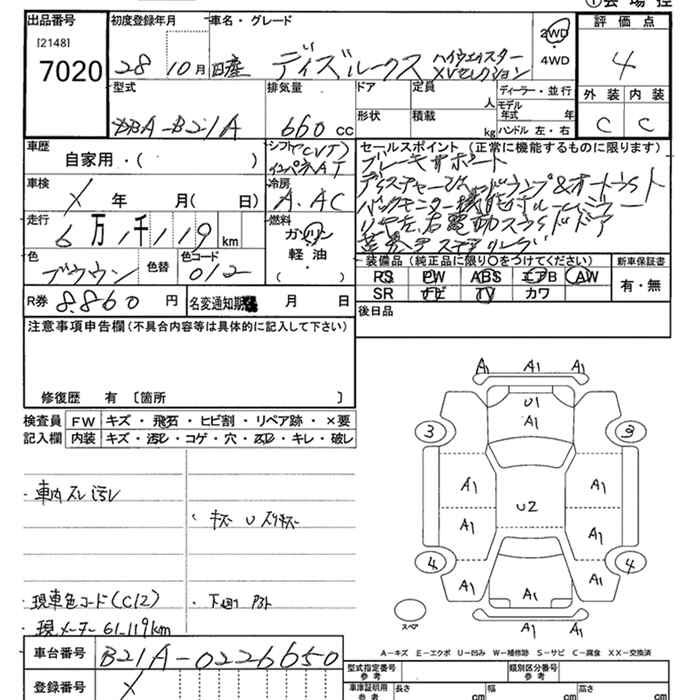 ① 会場控
出品番号 初度登録年月 車名・グレード 評価点
[2148]
7020
28 10月 日産 ディズルークス ハイウェイスター XVセレクション
2WD
・
4WD
4
外装 内装
C C
型式 排気量 ドア 定員 ディーラー・並行
人 モデル年式 年
形状 積載 kg ハンドル 左・右
DBA-B21A 660cc
車歴 自家用・( )
シフト(CVT)
インパネAT
セールスポイント(正常に機能するものに限ります)
ブレーキサポート
バックモニター
車検 X 年 月( 日)
冷房
A.AC
走行 6万1千119km
燃料
ガソリン
・
軽油
・
( )
色 色替 色コード
ブラウン 012
装備品(純正品に限り○をつけてください) 新車保証書
RS PW ABS エアB AW
SR ナビ TV カワ
有・無
R券 8.860円 名変通知期限 月 日
後日品
注意事項申告欄(不具合内容等は具体的に記入して下さい)
修復歴 有 〔箇所 〕
検査員記入欄
FW キズ・飛石・ヒビ割・リペア跡・×要
内装 キズ・汚レ・コゲ・穴・スレ・キレ・破レ
・車内スレ汚レ
キズ U スリキズ
・現車色コード(C12) ・下廻り
・現メーター61,119km
車台番号 B21A-0226650
登録番号 X
A1 A1 A1
U1
A1
3 3
A1 A1
U2
A1 A1
4 4
A1 A1 A1
スペア
A1 A1
A-キズ E-エクボ U-凹み W-補修跡 S-サビ C-腐食 XX-交換済
型式指定番号 参考 類別区分番号 参考
車庫証明用 参考 長さ cm 幅 cm 高さ cm